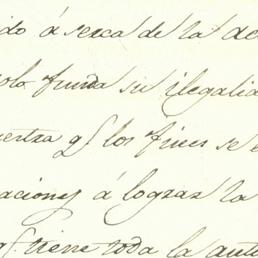 do á serca de la de
olo funda su ilegalid
uertza q̃ los fines se e
aciones á lograr la
q̃ tiene toda la auto